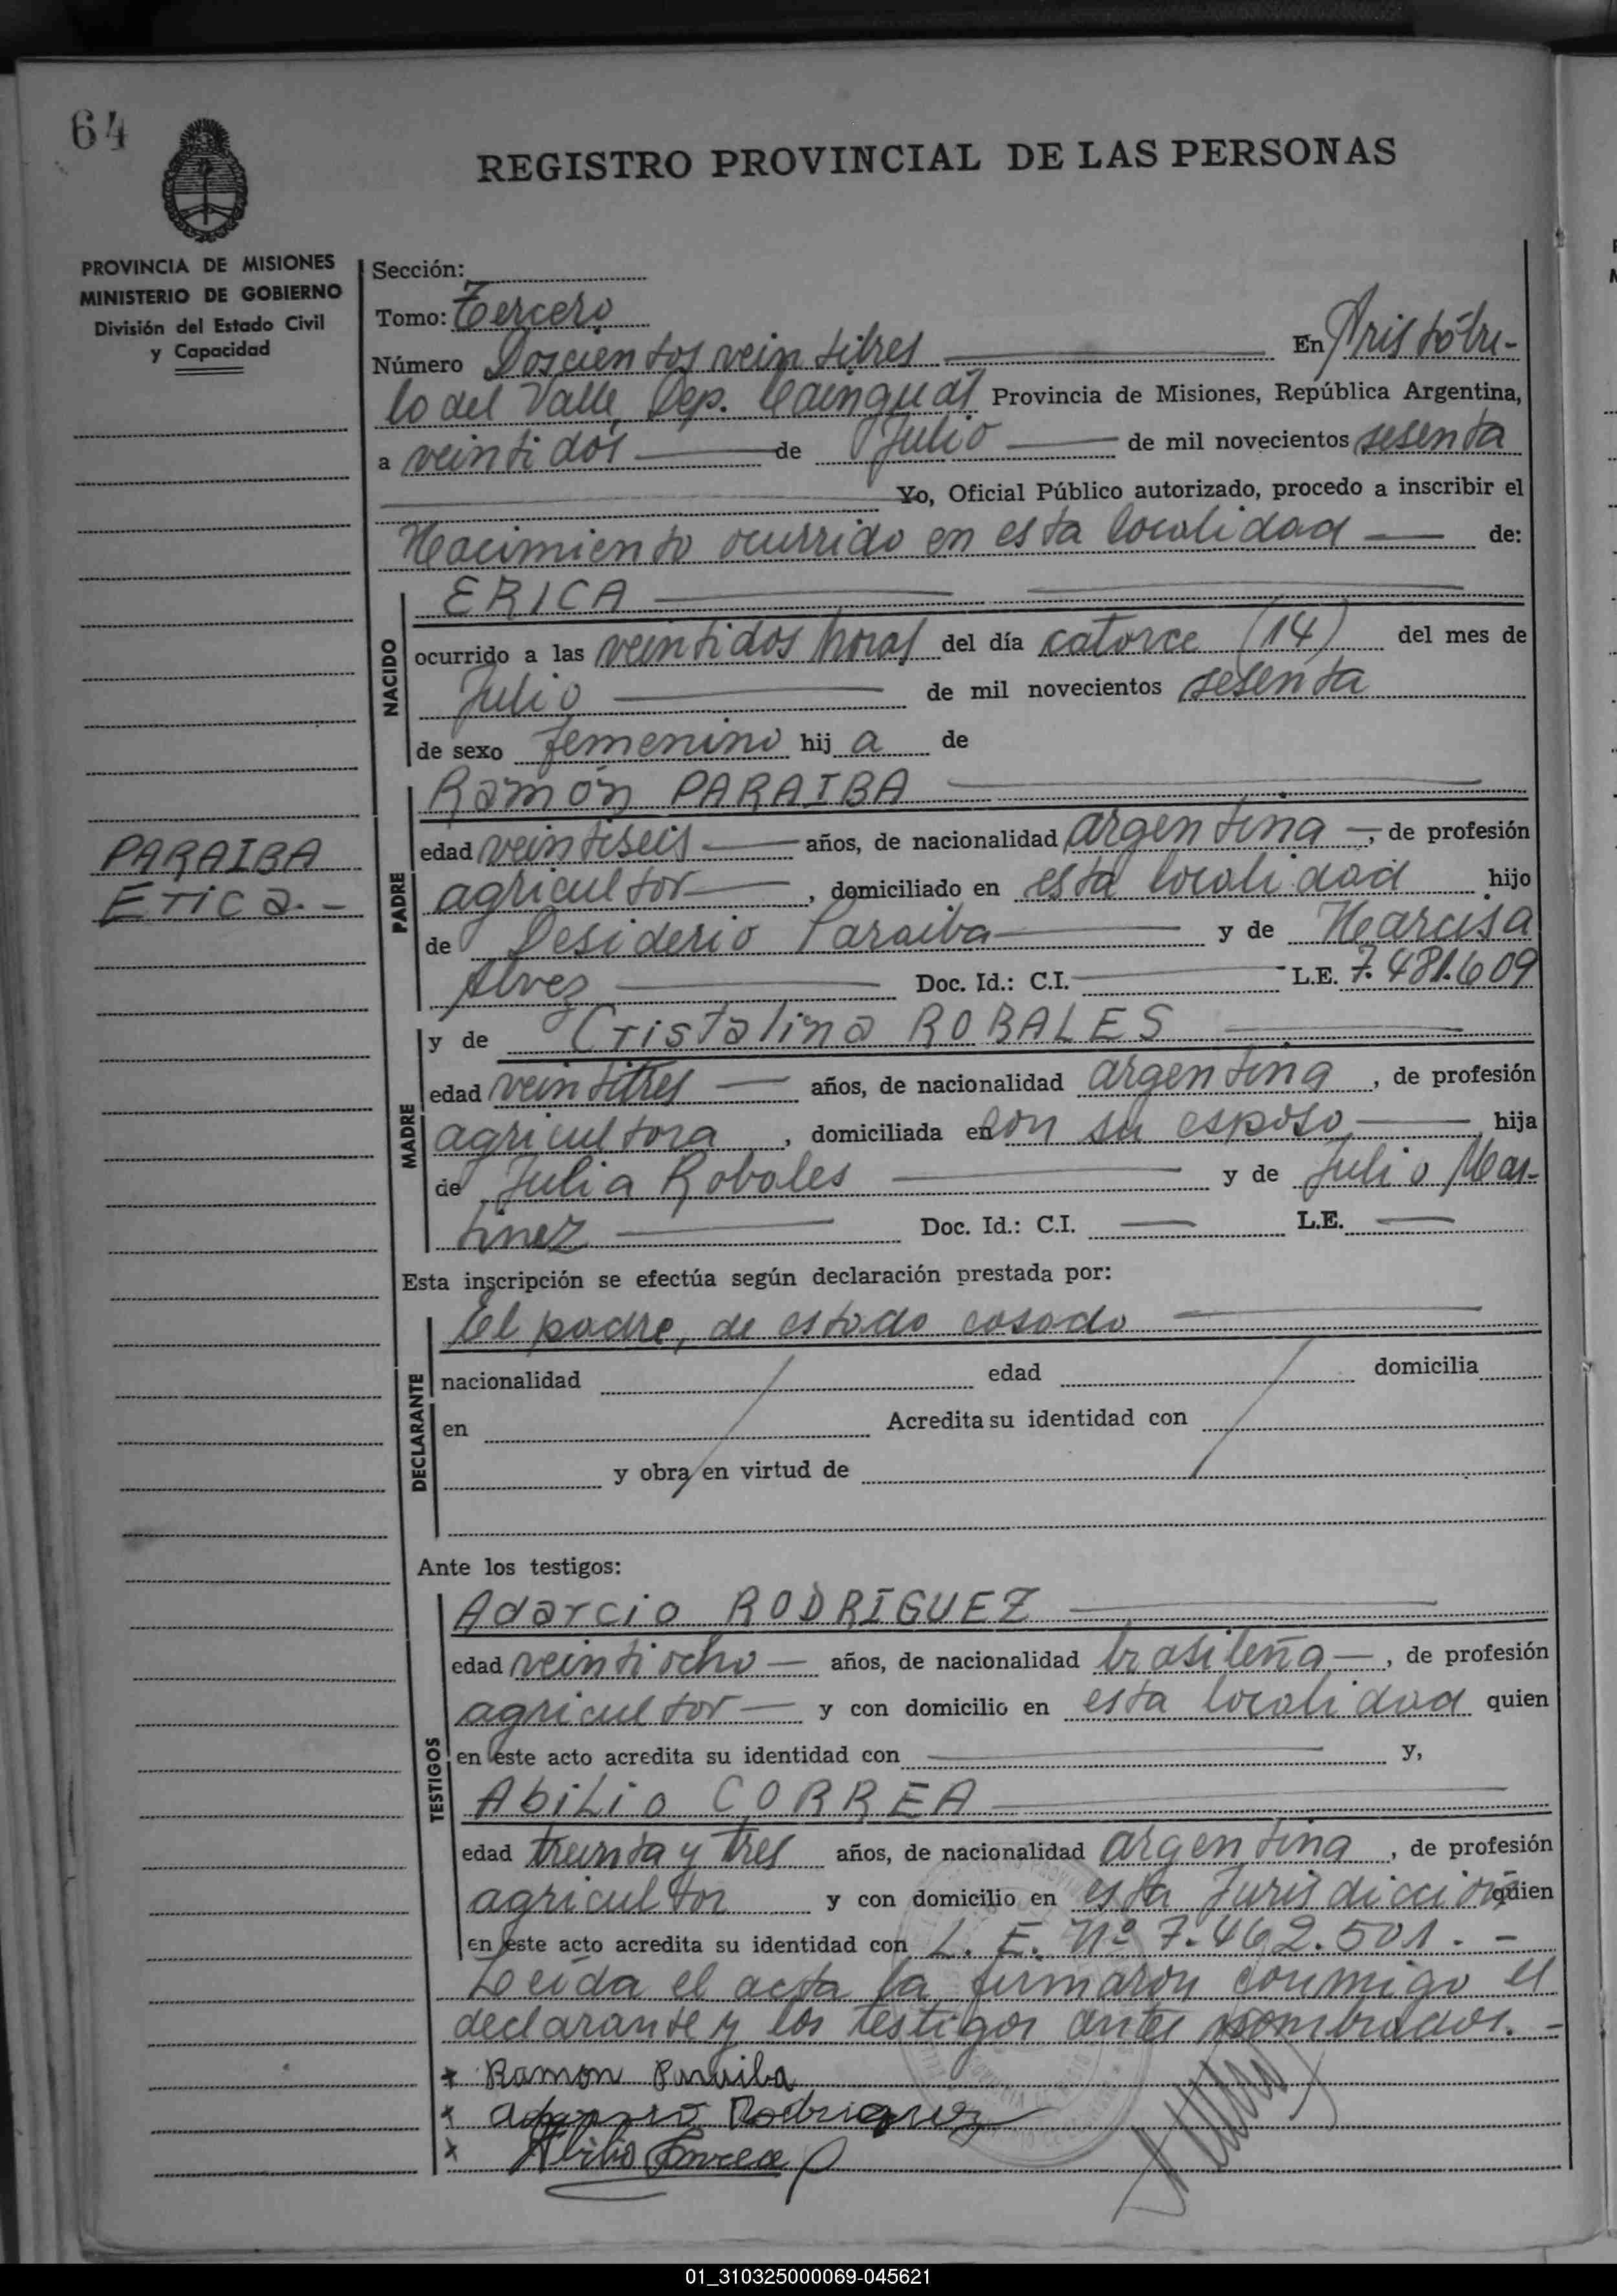 64
REGISTRO PROVINCIAL DE LAS PERSONAS
PROVINCIA DE MISIONES
MINISTERIO DE GOBIERNO
División del Estado Civil
y Capacidad
Sección:
Tomo: Tercero
Número Doscientos veintitres En Aristóbu-
lo del Valle, Dep. Cainguás Provincia de Misiones, República Argentina,
a veintidos de Julio de mil novecientos sesenta
Yo, Oficial Público autorizado, procedo a inscribir el
Nacimiento ocurrido en esta localidad de:
NACIDO
ERICA
ocurrido a las veintidos horas del día catorce (14) del mes de
Julio de mil novecientos sesenta
de sexo femenino hij a de
PARAIBA
ERICA.-
PADRE
Ramón PARAIBA
edad veintiseis años, de nacionalidad argentina, de profesión
agricultor, domiciliado en esta localidad hijo
de Desiderio Paraiba y de Narcisa
Alvez Doc. Id.: C.I. L.E. 7.481.609
MADRE
y de Cristalina ROBALES
edad veintitres años, de nacionalidad argentina, de profesión
agricultora, domiciliada en con su esposo hija
de Julia Robales y de Julio Mar-
tinez Doc. Id.: C.I. L.E.
Esta inscripción se efectúa según declaración prestada por:
DECLARANTE
El padre, de estado casado
nacionalidad edad domicilia
en Acredita su identidad con
y obra en virtud de
Ante los testigos:
TESTIGOS
Adarcio RODRIGUEZ
edad veintiocho años, de nacionalidad brasileña, de profesión
agricultor y con domicilio en esta localidad quien
en este acto acredita su identidad con y,
Abilio CORREA
edad treinta y tres años, de nacionalidad argentina, de profesión
agricultor y con domicilio en esta Jurisdicción quien
en este acto acredita su identidad con L. E. Nº 7.462.501.-
Leída el acta la firmaron conmigo el
declarante y los testigos antes nombrados.-
x Ramon Paraiba
x Rodriguez
x Abilio Correa
01_310325000069-045621